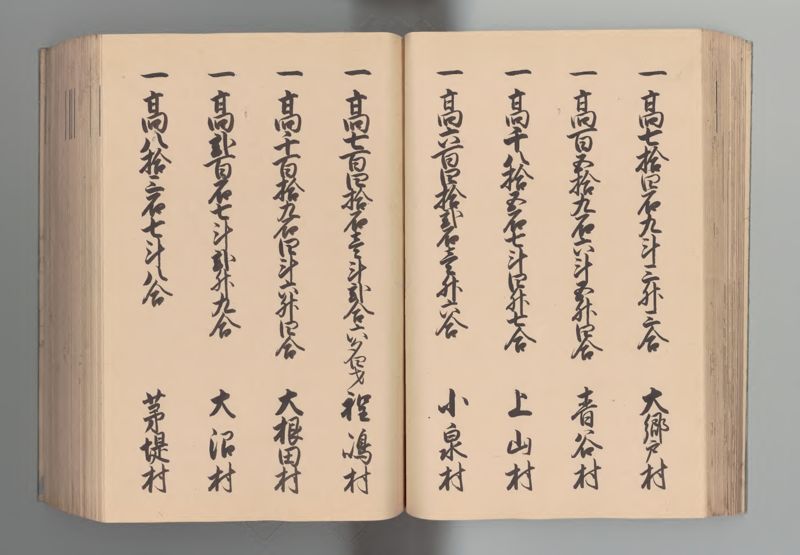 一 高七拾四石九斗三升三合 大郷戸村
一 高百五拾九石六斗五升四合 青谷村
一 高千八拾五石七斗四升七合 上山村
一 高六百四拾弐石壱升六合 小泉村
一 高七百四拾石壱斗弐合六夕四才 程嶋村
一 高千百拾九石四斗六升四合 大根田村
一 高弐百石七斗弐升九合 大沼村
一 高八拾三石七斗八合 茅堤村